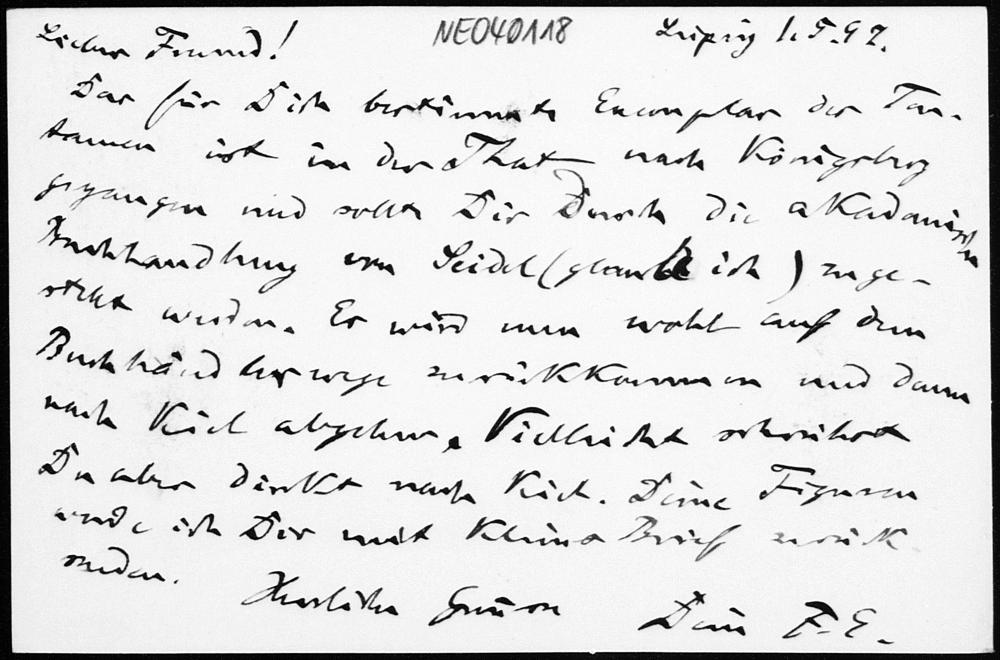 Lieber Freund! NE040118 Leipzig 1.5.97.
Das für Dich bestimmte Exemplar der Tan-
tamen ist in der That nach Königsberg
gegangen und sollte Dir durch die akademische
Buchhandlung von Seidel (glaube ich) zuge-
stellt werden. Es wird nun wohl auf dem
Buchhändlerwege zurückkommen und dann
nach Kiel abgehen. Vielleicht schreibst
Du aber direkt nach Kiel. Deine Figuren
werde ich Dir mit Kleins Brief zurück
senden.
Herzliche Grüsse Dein F. E.